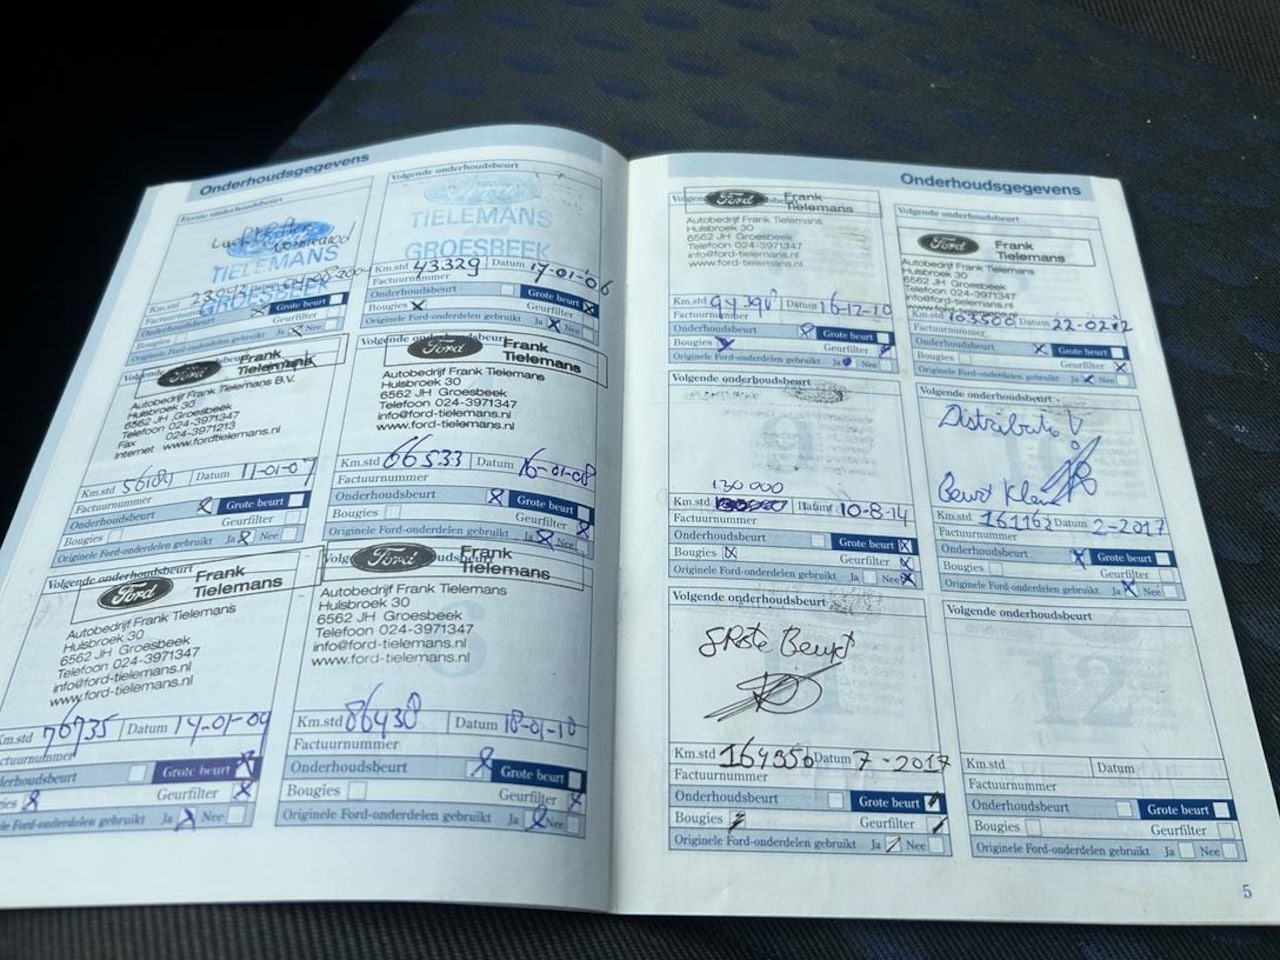 Onderhoudsgegevens
Eerste onderhoudsbeurt
TIELEMANS
GROESBEEK
Km.std 23092 Datum
Factuurnummer
Onderhoudsbeurt Grote beurt
Geurfilter
Originele Ford-onderdelen gebruikt Ja Nee
Volgende onderhoudsbeurt
TIELEMANS
GROESBEEK
Km.std 43329 Datum 17-01-06
Factuurnummer
Onderhoudsbeurt Grote beurt
Bougies Geurfilter
Originele Ford-onderdelen gebruikt Ja Nee
Volgende
Ford Frank Tielemans
Autobedrijf Frank Tielemans B.V.
Hulsbroek 30
6562 JH Groesbeek
Telefoon 024-3971347
Fax 024-3971213
Internet www.fordtielemans.nl
Km.std 56189 Datum 11-01-07
Factuurnummer
Onderhoudsbeurt Grote beurt
Bougies Geurfilter
Originele Ford-onderdelen gebruikt Ja Nee
Volgende onderhoudsbeurt
Ford Frank Tielemans
Autobedrijf Frank Tielemans
Hulsbroek 30
6562 JH Groesbeek
Telefoon 024-3971347
info@ford-tielemans.nl
www.ford-tielemans.nl
Km.std 66533 Datum 16-01-08
Factuurnummer
Onderhoudsbeurt Grote beurt
Bougies Geurfilter
Originele Ford-onderdelen gebruikt Ja Nee
Volgende onderhoudsbeurt
Ford Frank Tielemans
Autobedrijf Frank Tielemans
Hulsbroek 30
6562 JH Groesbeek
Telefoon 024-3971347
info@ford-tielemans.nl
www.ford-tielemans.nl
Km.std 76735 Datum 14-01-09
Factuurnummer
Onderhoudsbeurt Grote beurt
Geurfilter
Ford-onderdelen gebruikt Ja Nee
Volgende onderhoudsbeurt
Ford Frank Tielemans
Autobedrijf Frank Tielemans
Hulsbroek 30
6562 JH Groesbeek
Telefoon 024-3971347
info@ford-tielemans.nl
www.ford-tielemans.nl
Km.std 86438 Datum 18-01-10
Factuurnummer
Onderhoudsbeurt Grote beurt
Bougies Geurfilter
Originele Ford-onderdelen gebruikt Ja Nee
Onderhoudsgegevens
Ford Frank Tielemans
Autobedrijf Frank Tielemans
Hulsbroek 30
6562 JH Groesbeek
Telefoon 024-3971347
info@ford-tielemans.nl
www.ford-tielemans.nl
Km.std Datum 16-12-10
Factuurnummer
Onderhoudsbeurt Grote beurt
Bougies Geurfilter
Originele Ford-onderdelen gebruikt Ja Nee
Volgende onderhoudsbeurt
Ford Frank Tielemans
Autobedrijf Frank Tielemans
Hulsbroek 30
6562 JH Groesbeek
Telefoon 024-3971347
info@ford-tielemans.nl
www.ford-tielemans.nl
Km.std 103500 Datum 22-02-12
Factuurnummer
Onderhoudsbeurt Grote beurt
Bougies Geurfilter
Originele Ford-onderdelen gebruikt Ja Nee
Volgende onderhoudsbeurt
9
130000
Km.std Datum 10-8-14
Factuurnummer
Onderhoudsbeurt Grote beurt
Bougies Geurfilter
Originele Ford-onderdelen gebruikt Ja Nee
Volgende onderhoudsbeurt
Distributie!
Beurt Klein
Km.std 161162 Datum 2-2017
Factuurnummer
Onderhoudsbeurt Grote beurt
Bougies Geurfilter
Originele Ford-onderdelen gebruikt Ja Nee
Volgende onderhoudsbeurt
Grote Beurt
Km.std 164956 Datum 7-2017
Factuurnummer
Onderhoudsbeurt Grote beurt
Bougies Geurfilter
Originele Ford-onderdelen gebruikt Ja Nee
Volgende onderhoudsbeurt
12
Km.std Datum
Factuurnummer
Onderhoudsbeurt Grote beurt
Bougies Geurfilter
Originele Ford-onderdelen gebruikt Ja Nee
5